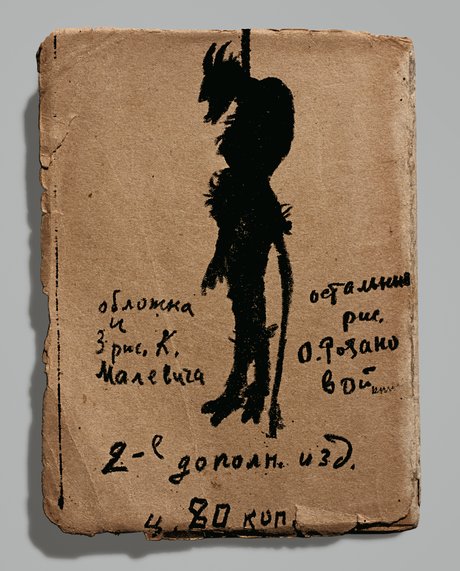 обложка
и
3 рис. К.
Малевича
остальныя
рис.
О. Розано
вой
2-е дополн. изд.
ц. 80 коп.